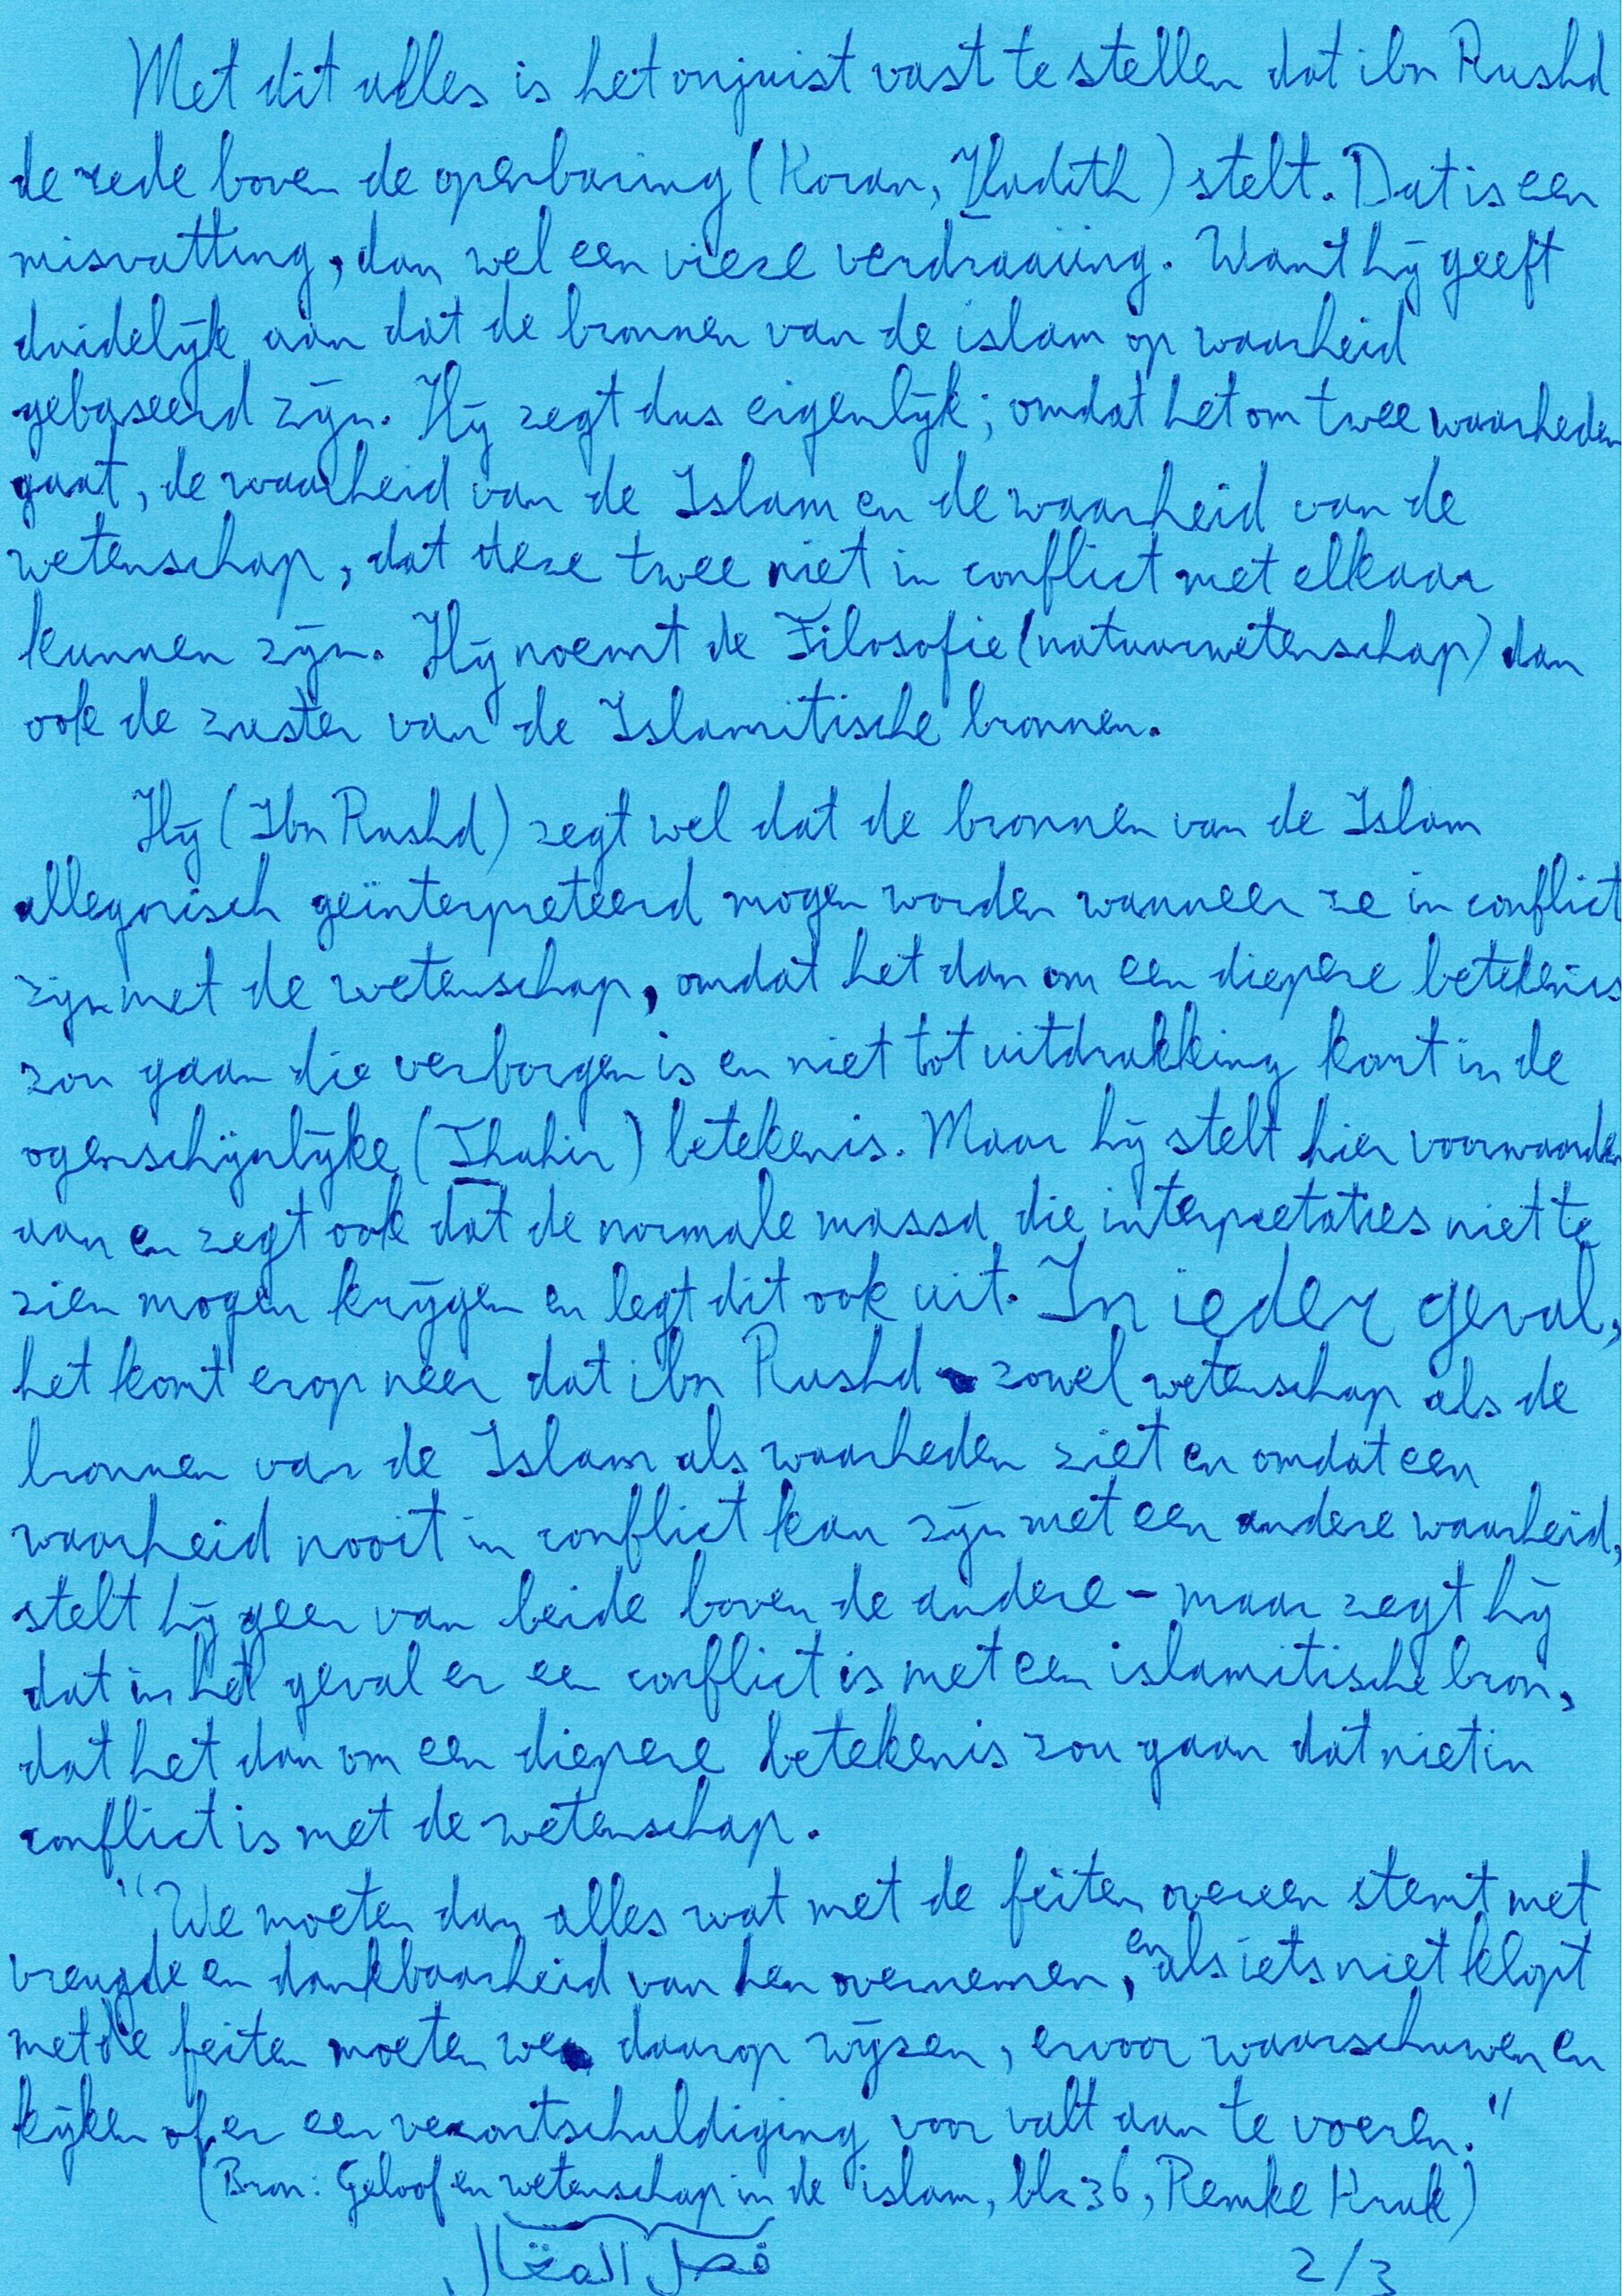 Met dit alles is het onjuist vast te stellen dat ibn Rushd
de rede boven de openbaring (Koran, Hadith) stelt. Dat is een
misvatting, dan wel een vieze verdraaiing. Want hij geeft
duidelijk aan dat de bronnen van de islam op waarheid
gebaseerd zijn. Hij zegt dus eigenlijk; omdat het om twee waarheden
gaat, de waarheid van de Islam en de waarheid van de
wetenschap, dat deze twee niet in conflict met elkaar
kunnen zijn. Hij noemt de Filosofie (natuurwetenschap) dan
ook de zuster van de Islamitische bronnen.
Hij (Ibn Rushd) zegt wel dat de bronnen van de Islam
allegorisch geïnterpreteerd mogen worden wanneer ze in conflict
zijn met de wetenschap, omdat het dan om een diepere betekenis
zou gaan die verborgen is en niet tot uitdrukking komt in de
ogenschijnlijke (Thahir) betekenis. Maar hij stelt hier voorwaarden
aan en zegt ook dat de normale massa die interpretaties niet te
zien mogen krijgen en legt dit ook uit. In ieder geval,
het komt erop neer dat ibn Rushd zowel wetenschap als de
bronnen van de Islam als waarheden ziet en omdat een
waarheid nooit in conflict kan zijn met een andere waarheid,
stelt hij geen van beide boven de andere - maar zegt hij
dat in het geval er een conflict is met een islamitische bron,
dat het dan om een diepere betekenis zou gaan dat niet in
conflict is met de wetenschap.
"We moeten dan alles wat met de feiten overeen stemt met
vreugde en dankbaarheid van hen overnemen, en als iets niet klopt
met de feiten moeten we daarop wijzen, ervoor waarschuwen en
kijken of er een verontschuldiging voor valt aan te voeren."
(Bron: Geloof en wetenschap in de islam, blz 36, Remke Kruk)
فصل المقال
2/3